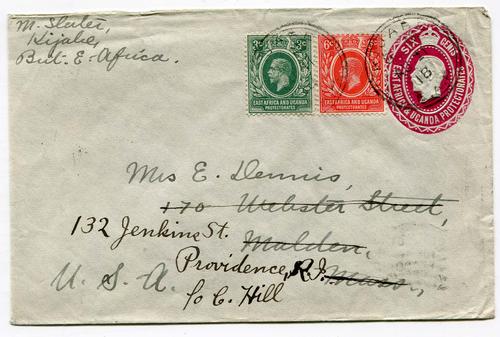 M. Slater,
Kijabe,
Brit. E. Africa.
3c 3c
EAST AFRICA AND UGANDA
PROTECTORATES
6c 6c
EAST AFRICA AND UGANDA
PROTECTORATES
SIX CENTS
EAST AFRICA & UGANDA PROTECTORATES
Mrs E. Dennis,
170 Webster Street,
132 Jenkins St.
Malden,
Providence, R.I. Mass,
U. S. A.
c/o C. Hill